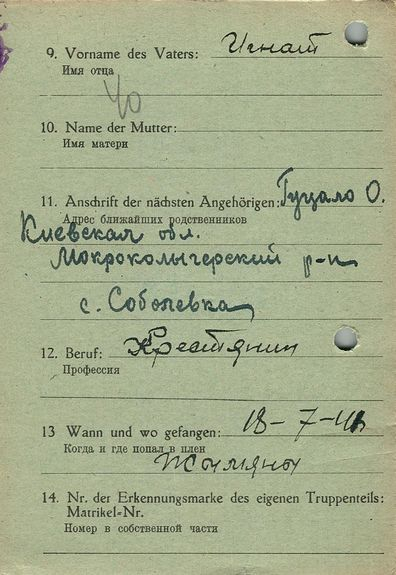 9. Vorname des Vaters: Игнат
Имя отца
40
10. Name der Mutter:
Имя матери
11. Anschrift der nächsten Angehörigen: Гуцало О.
Адрес ближайших родственников
Киевская обл.
Мокрокалыгерский р-н
с. Соболевка
12. Beruf: Крестянин
Профессия
13 Wann und wo gefangen: 18-7-41
Когда и где попал в плен
14. Nr. der Erkennungsmarke des eigenen Truppenteils:
Matrikel-Nr.
Номер в собственной части